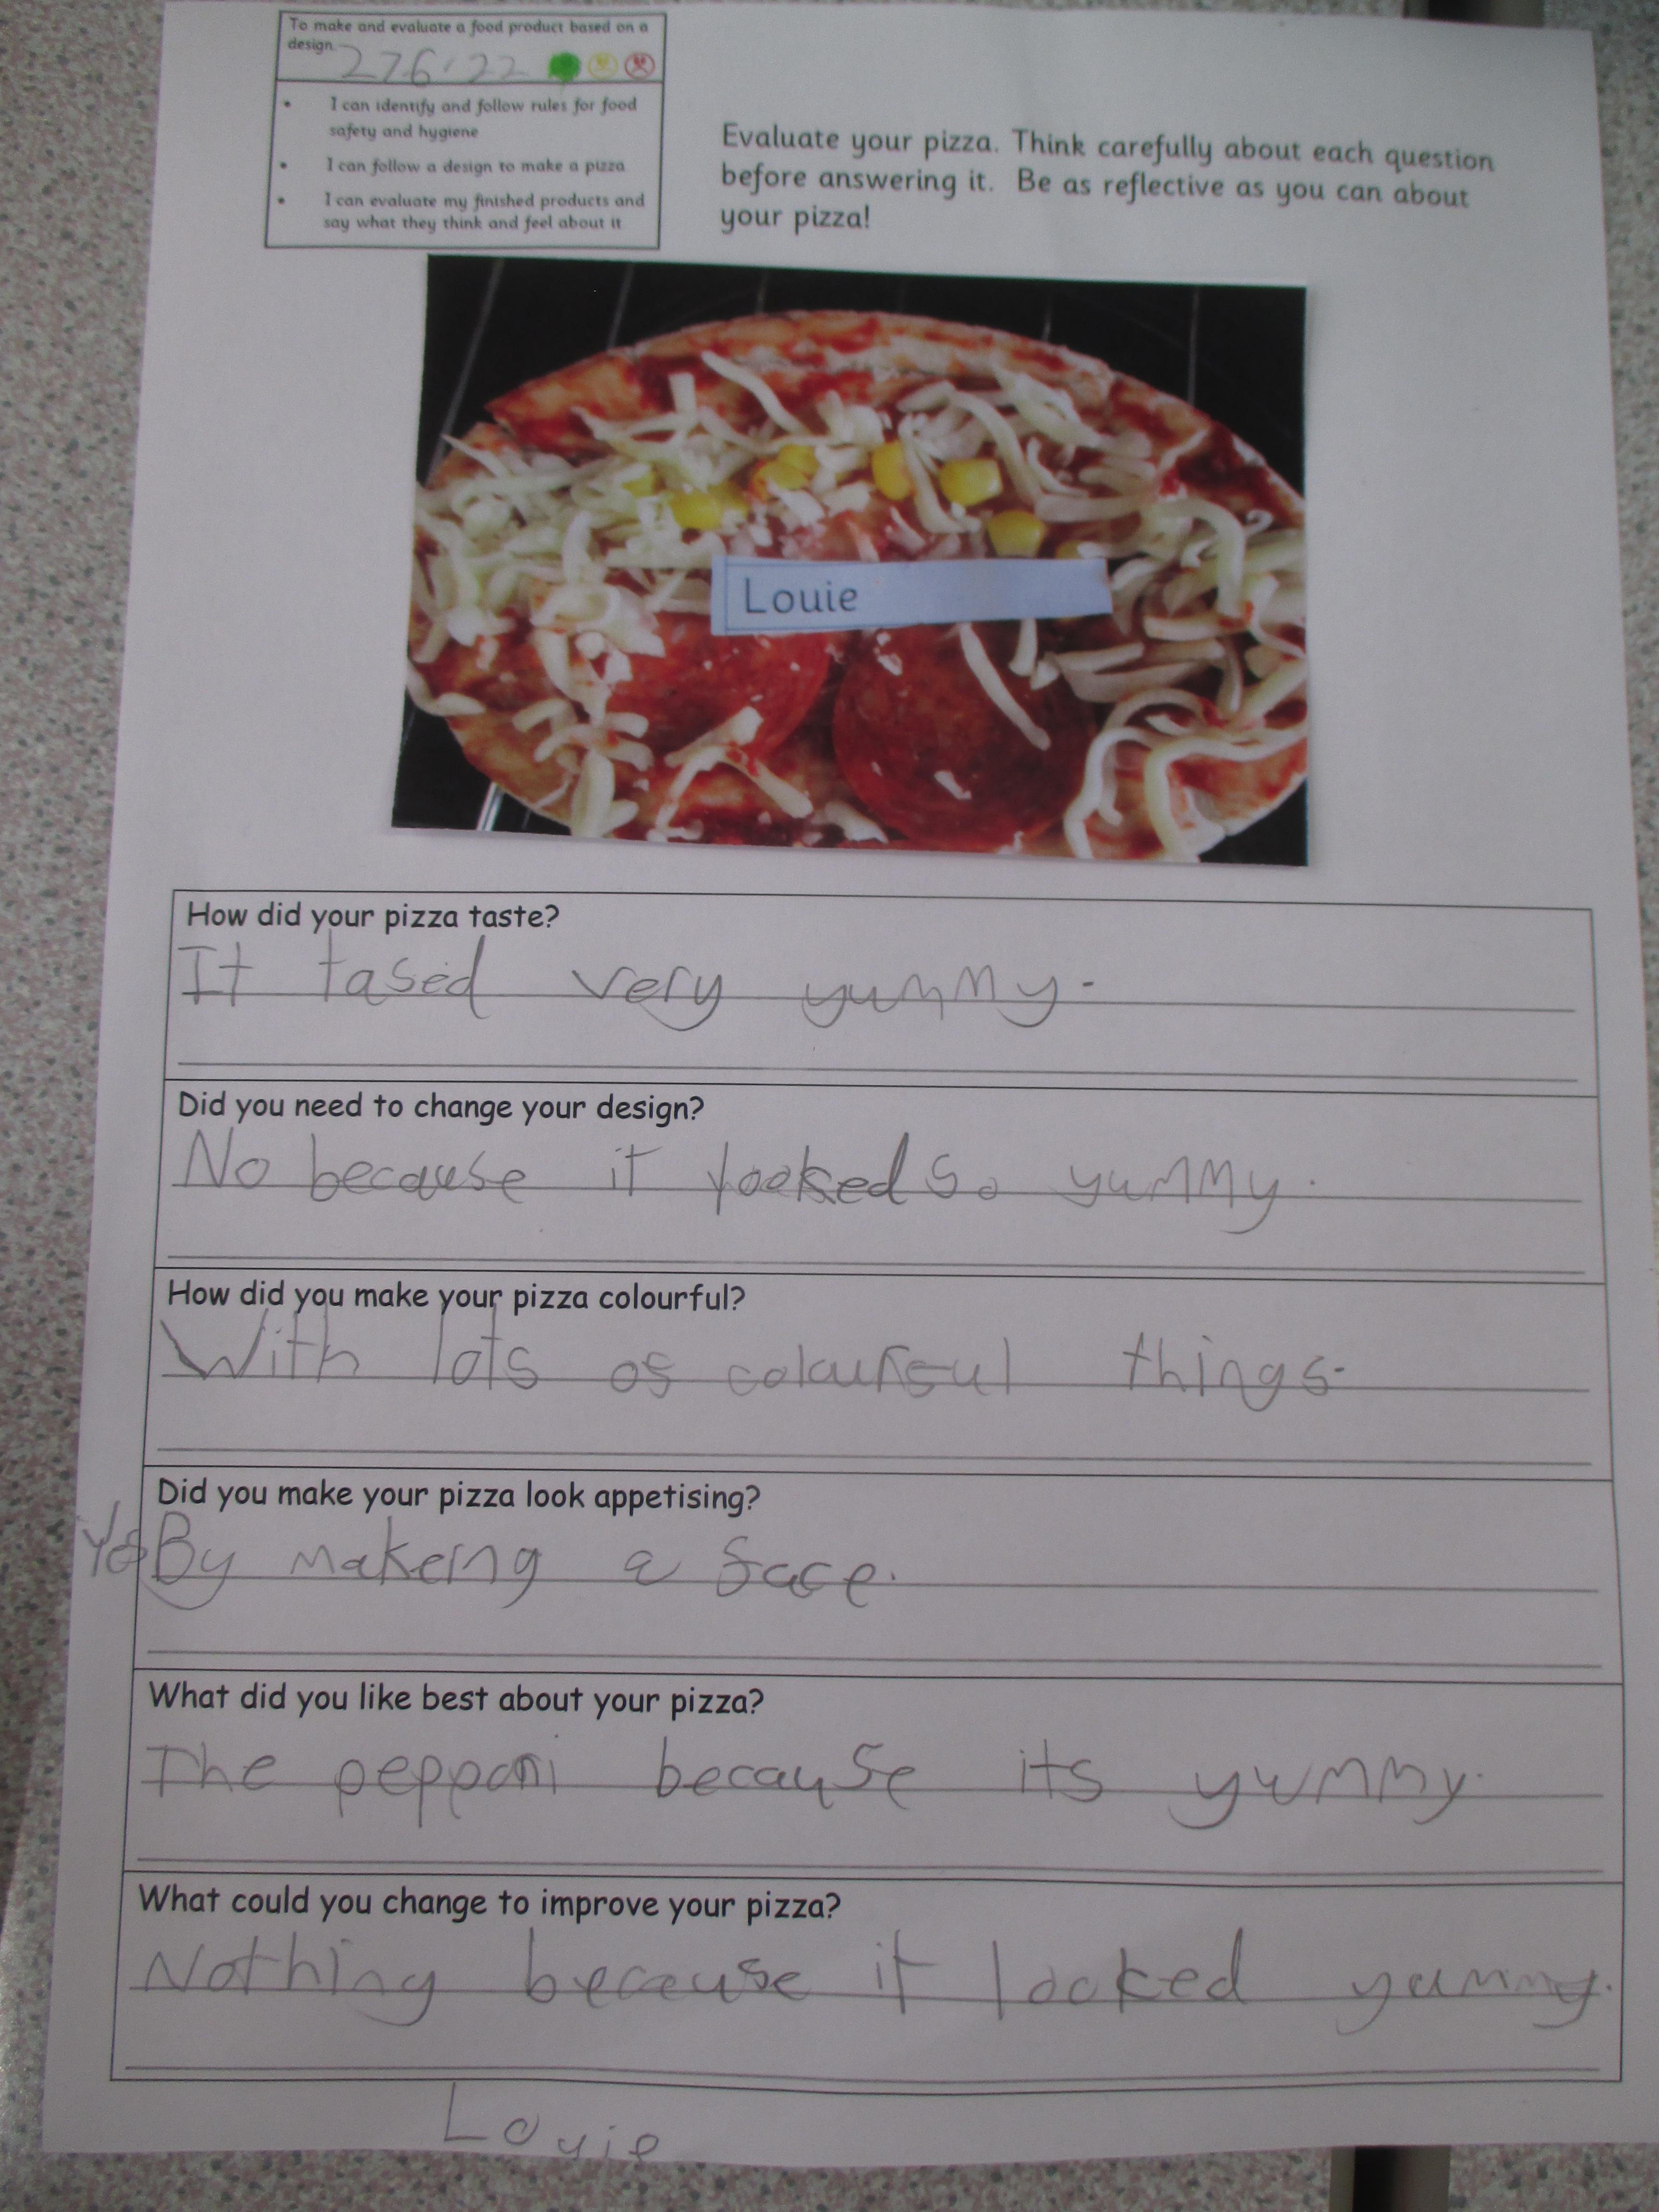 To make and evaluate a food product based on a
design.
27.6.22
• I can identify and follow rules for food
safety and hygiene
• I can follow a design to make a pizza
• I can evaluate my finished products and
say what they think and feel about it
Evaluate your pizza. Think carefully about each question
before answering it. Be as reflective as you can about
your pizza!
Louie
How did your pizza taste?
It tased very yummy.
Did you need to change your design?
No because it looked so yummy.
How did you make your pizza colourful?
With lots of colourful things.
Did you make your pizza look appetising?
By makeing a face.
What did you like best about your pizza?
The pepponi because its yummy.
What could you change to improve your pizza?
Nothing because it looked yummy.
Louie